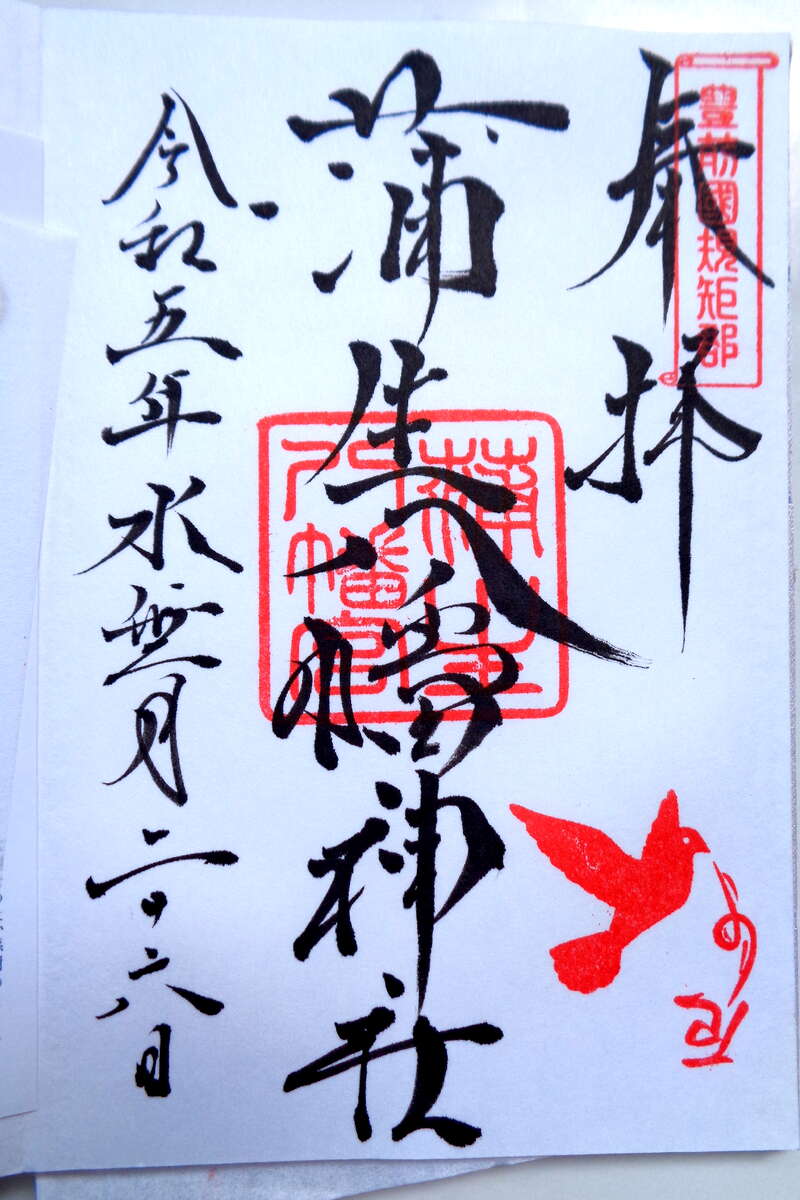 奉拝
豊前國規矩郡
蒲生八幡神社
蒲生
八幡宮
令和五年水無月二十六日